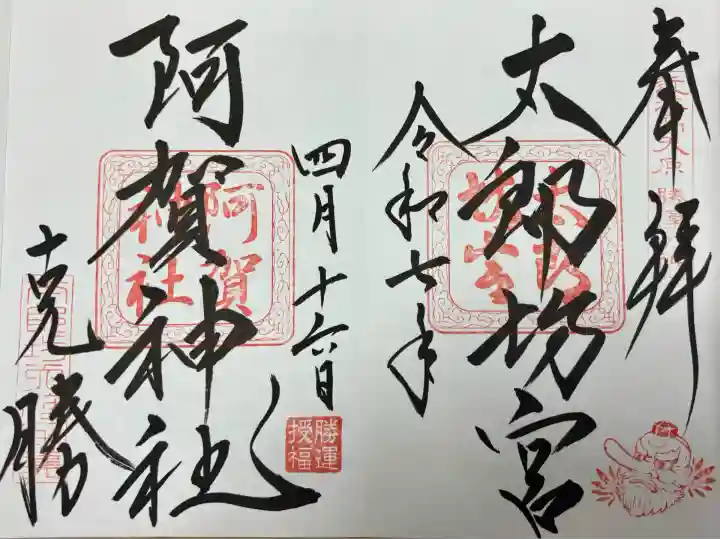 奉拝
太郎坊宮
太郎
坊宮
令和七年
四月十六日
勝運
授福
阿賀神社
阿賀
神社
克勝